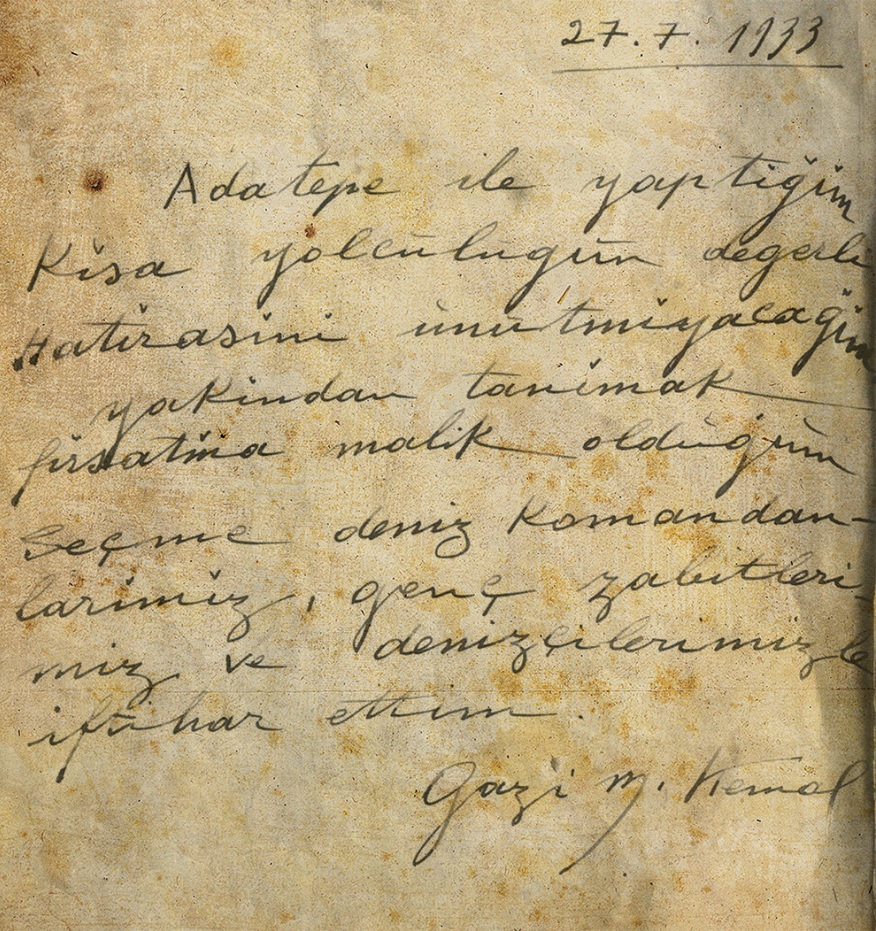 27.7.1933
Adatepe ile yaptiğim
Kisa yolculuğun değerli
Hatirasini unutmiyacağim
yakindan tanimak
firsatina malik olduğum
Seçme deniz Komandan-
larimiz, genç zabitleri-
miz ve denizçilerimizle
iftihar ettim.
Gazi M. Kemal